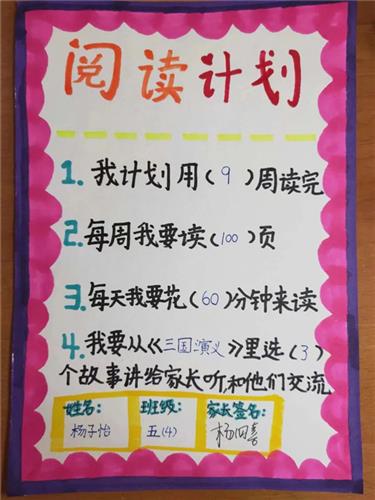 阅读计划
1. 我计划用(9)周读完
2. 每周我要读(100)页
3. 每天我要花(60)分钟来读
4. 我要从《三国演义》里选(3)
个故事讲给家长听和他们交流
姓名: 班级: 家长签名:
杨子怡 五(4) 杨四喜